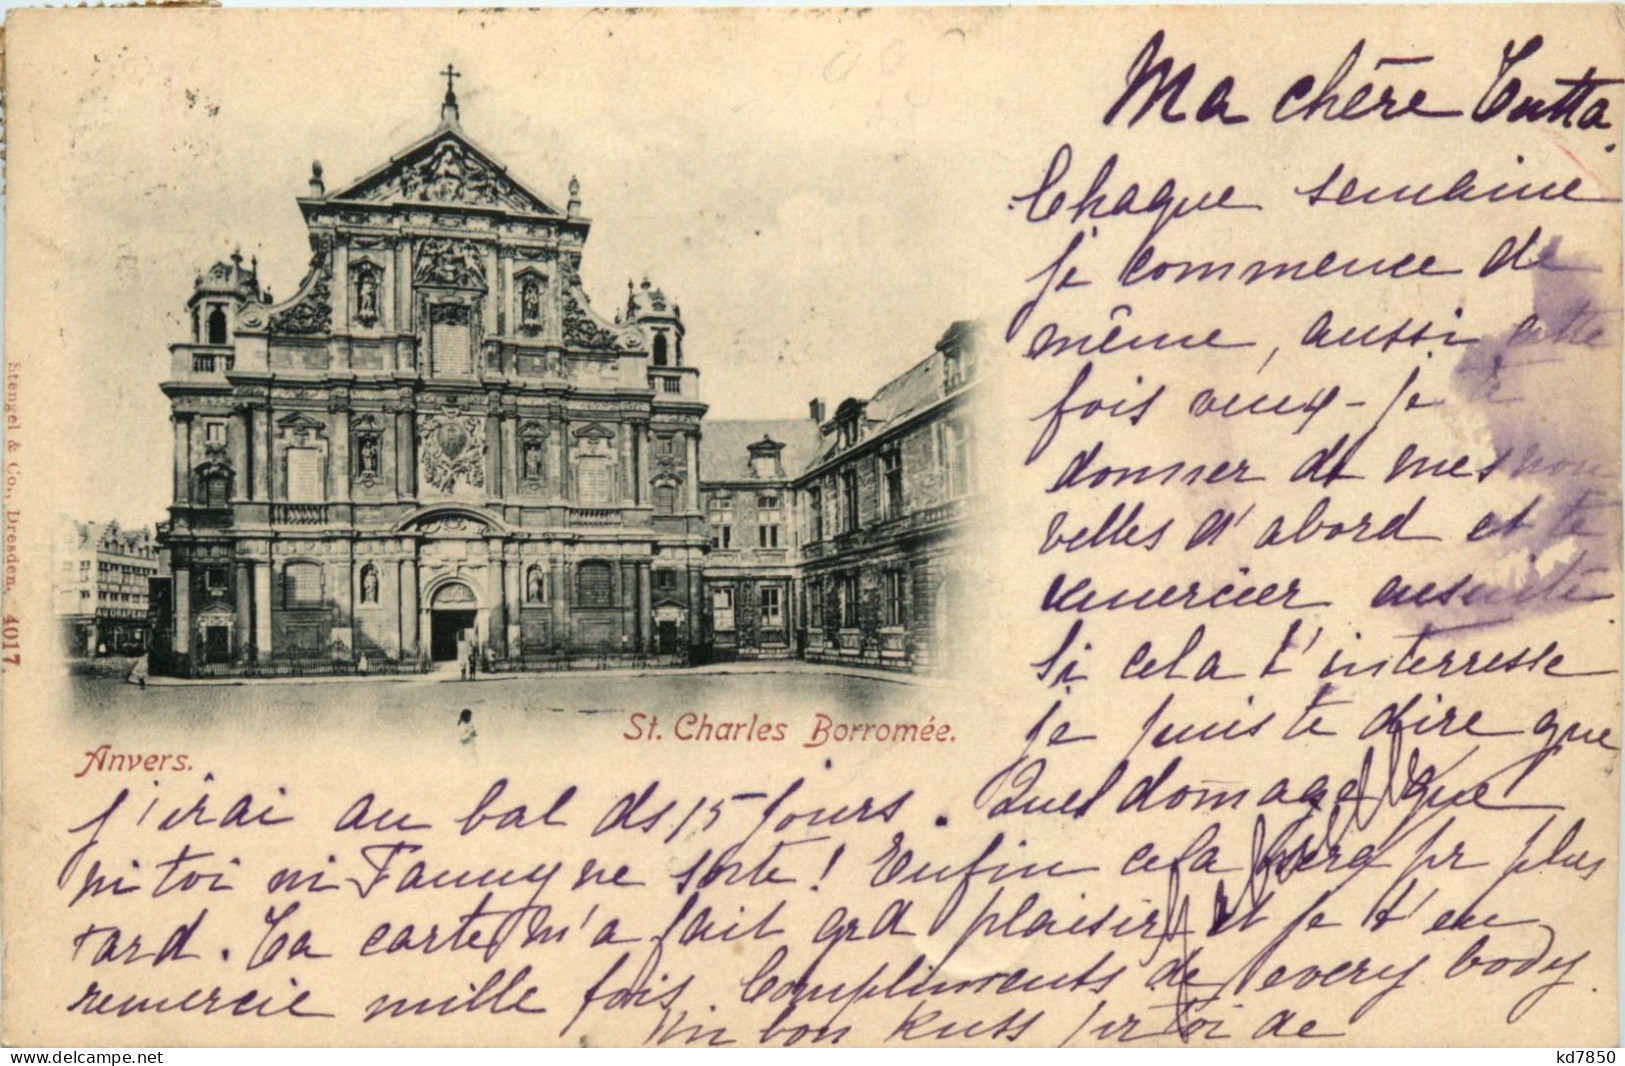 Ma chère Tutta.
Chaque semaine
je commence de
même, aussi cette
fois veux-je te
donner de mes nou
velles d'abord et te
remercier ensuite
si cela t'interresse
je puis te dire que
j'irai au bal ds 15 jours. Quel domage que
ni toi ni Fanny ne sorte! Enfin cela sera pr plus
tard. Ta carte m'a fait grd plaisir et je t'en
remercie mille fois. Compliments de every body.
Un bon Kuss pr toi de
St. Charles Borromée.
Anvers.
Stengel & Co., Dresden. 4017.
AU DRAPEAU
kd7850